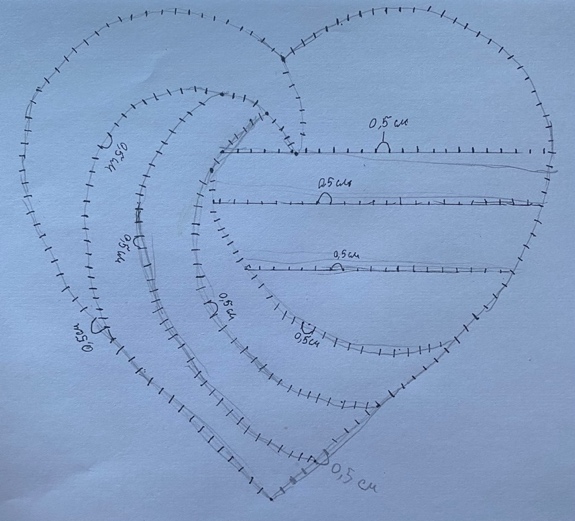 0,5 см
0,5 см
0,5 см
0,5 см
0,5 см
0,5 см
0,5 см
0,5 см
0,5 см